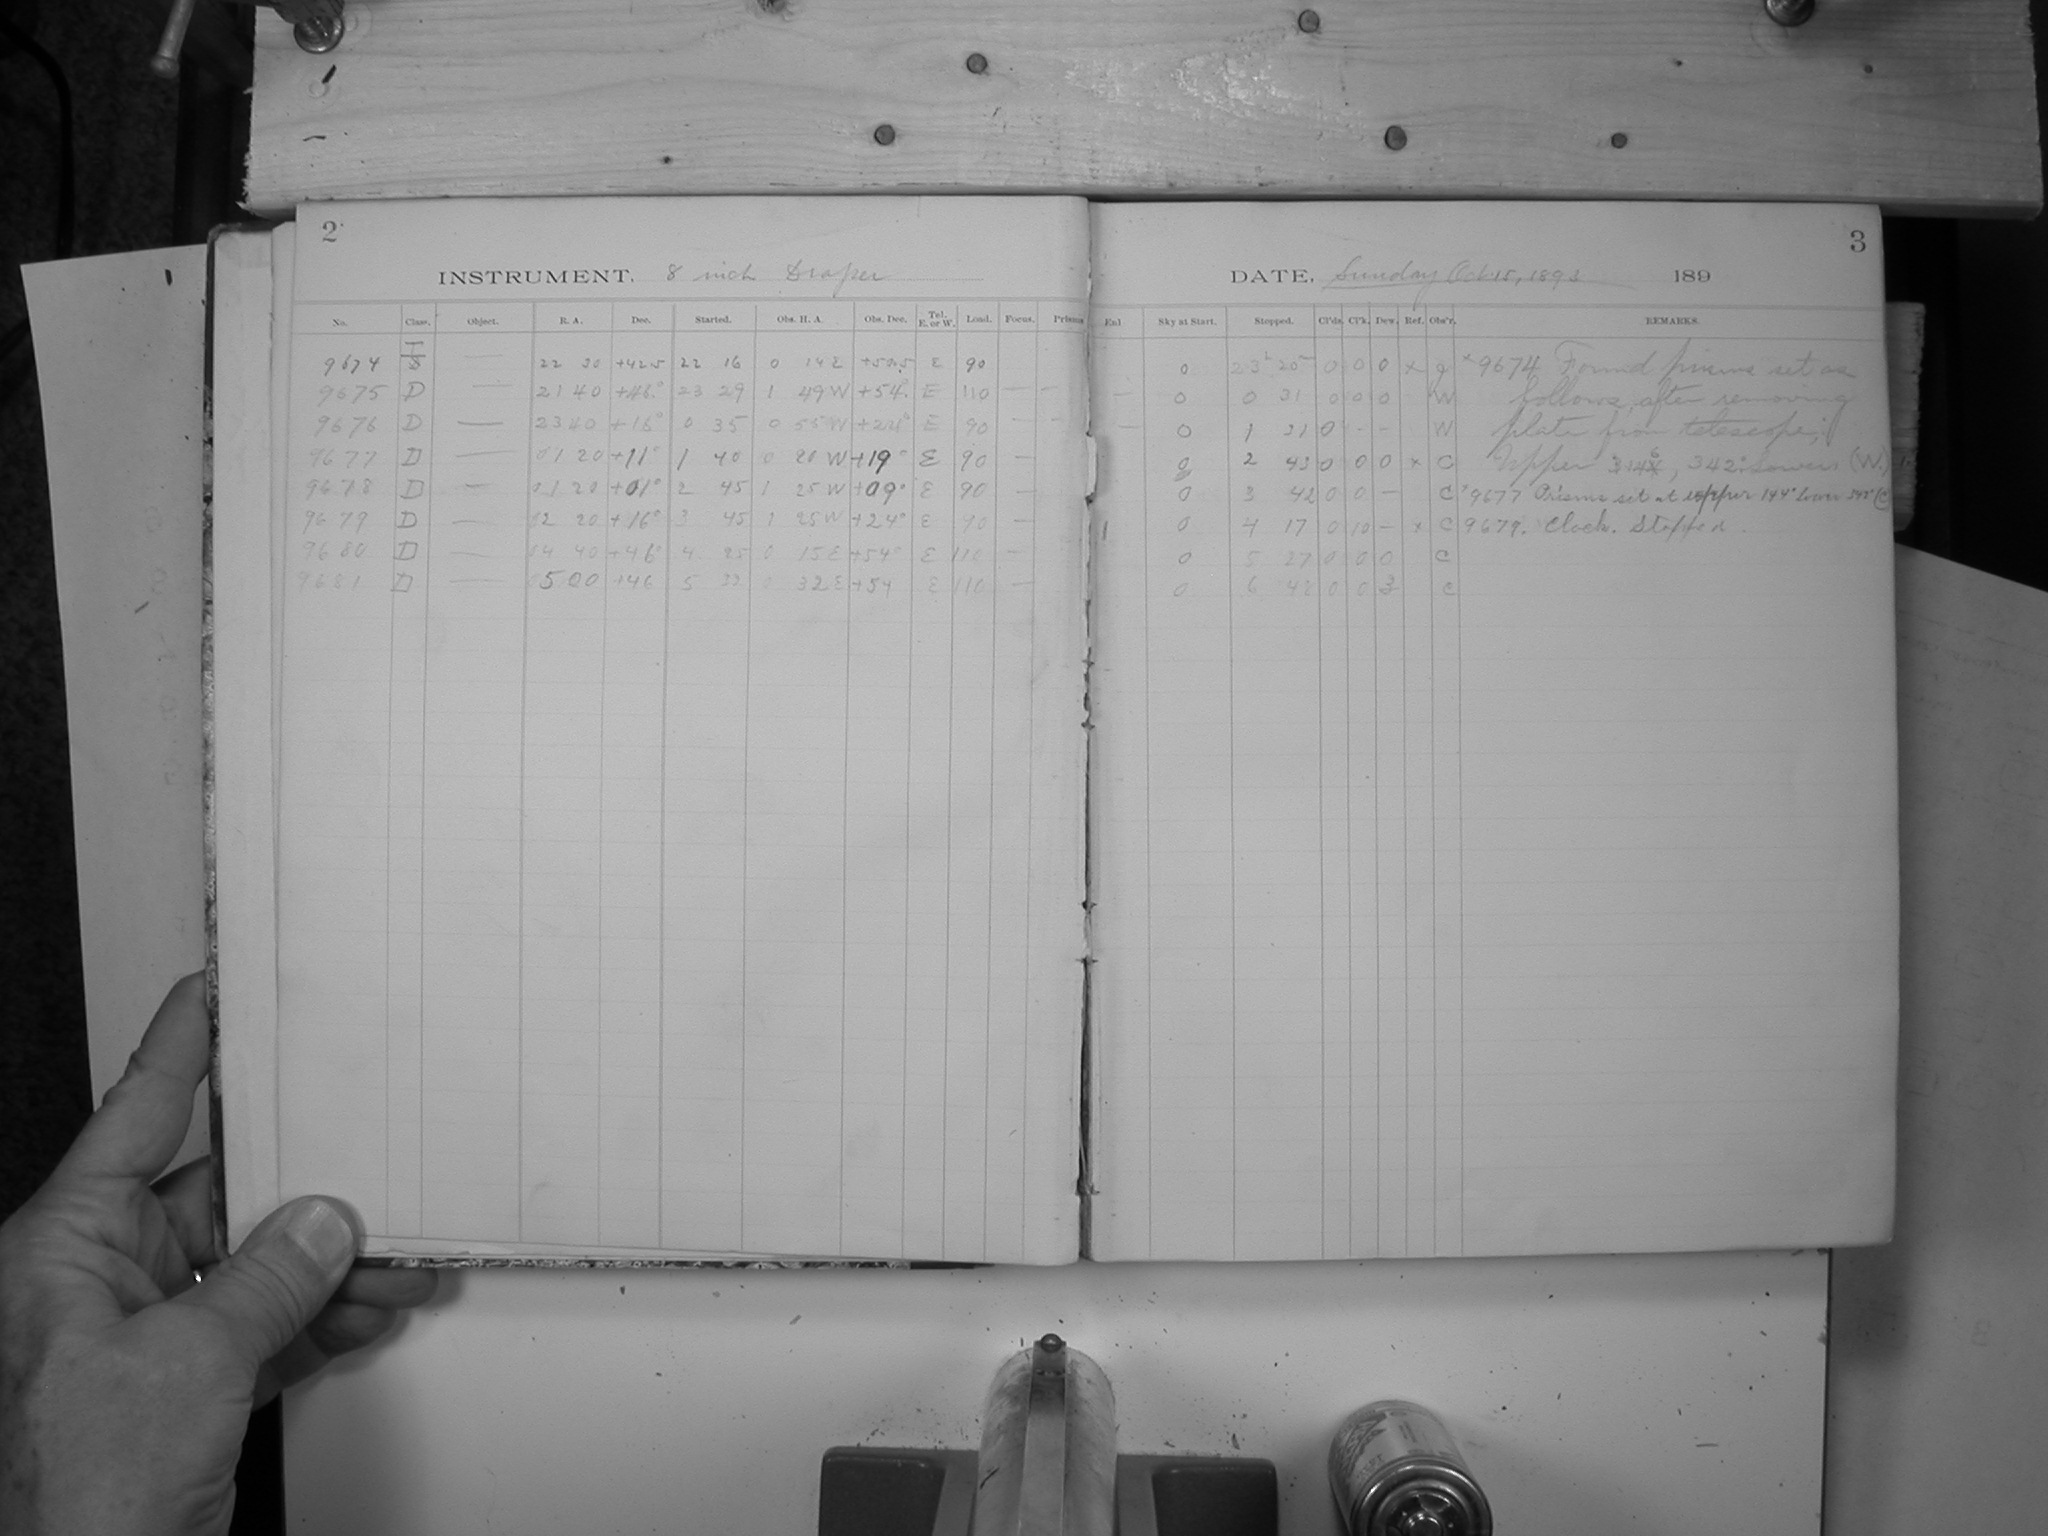 2
INSTRUMENT. 8 inch Draper
No. Class. Object. R. A. Dec. Started. Obs. H. A. Obs. Dec. Tel. E. or W. Load. Focus. Prisms
9674 — 22 30 +42.5 22 16 0 14 E +50.5 E 90
9675 D — 21 40 +46° 23 29 1 49 W +54° E 110 — —
9676 D — 23 40 +16° 0 35 0 55 W +24° E 90 — —
9677 D — 01 20 +11° 1 40 0 20 W +19° E 90 —
9678 D — 01 20 +01° 2 45 1 25 W +09° E 90 —
9679 D — 02 20 +16° 3 45 1 25 W +24° E 90 —
9680 D — 04 40 +46° 4 25 0 15 E +54° E 110 —
9681 D — 5 00 +46 5 32 0 32 E +54 E 110 —
3
DATE, Sunday Oct 15, 1893 189
Enl Sky at Start. Stopped. Cl'ds. Cl'k. Dew. Ref. Obs'r. REMARKS.
0 23 20 0 0 0 x g x 9674 Found prisms set as
— 0 0 31 0 0 0 W follows, after removing
— 0 1 31 0 - - W plate from telescope;
0 2 43 0 0 0 x C Upper 342° Lower (W.)
0 3 42 0 0 — C x 9677 Prisms set at upper 144° Lower 342° (C
0 4 17 0 10 — x C 9679. Clock. Stopped.
0 5 27 0 0 0 C
0 6 42 0 0 3 C